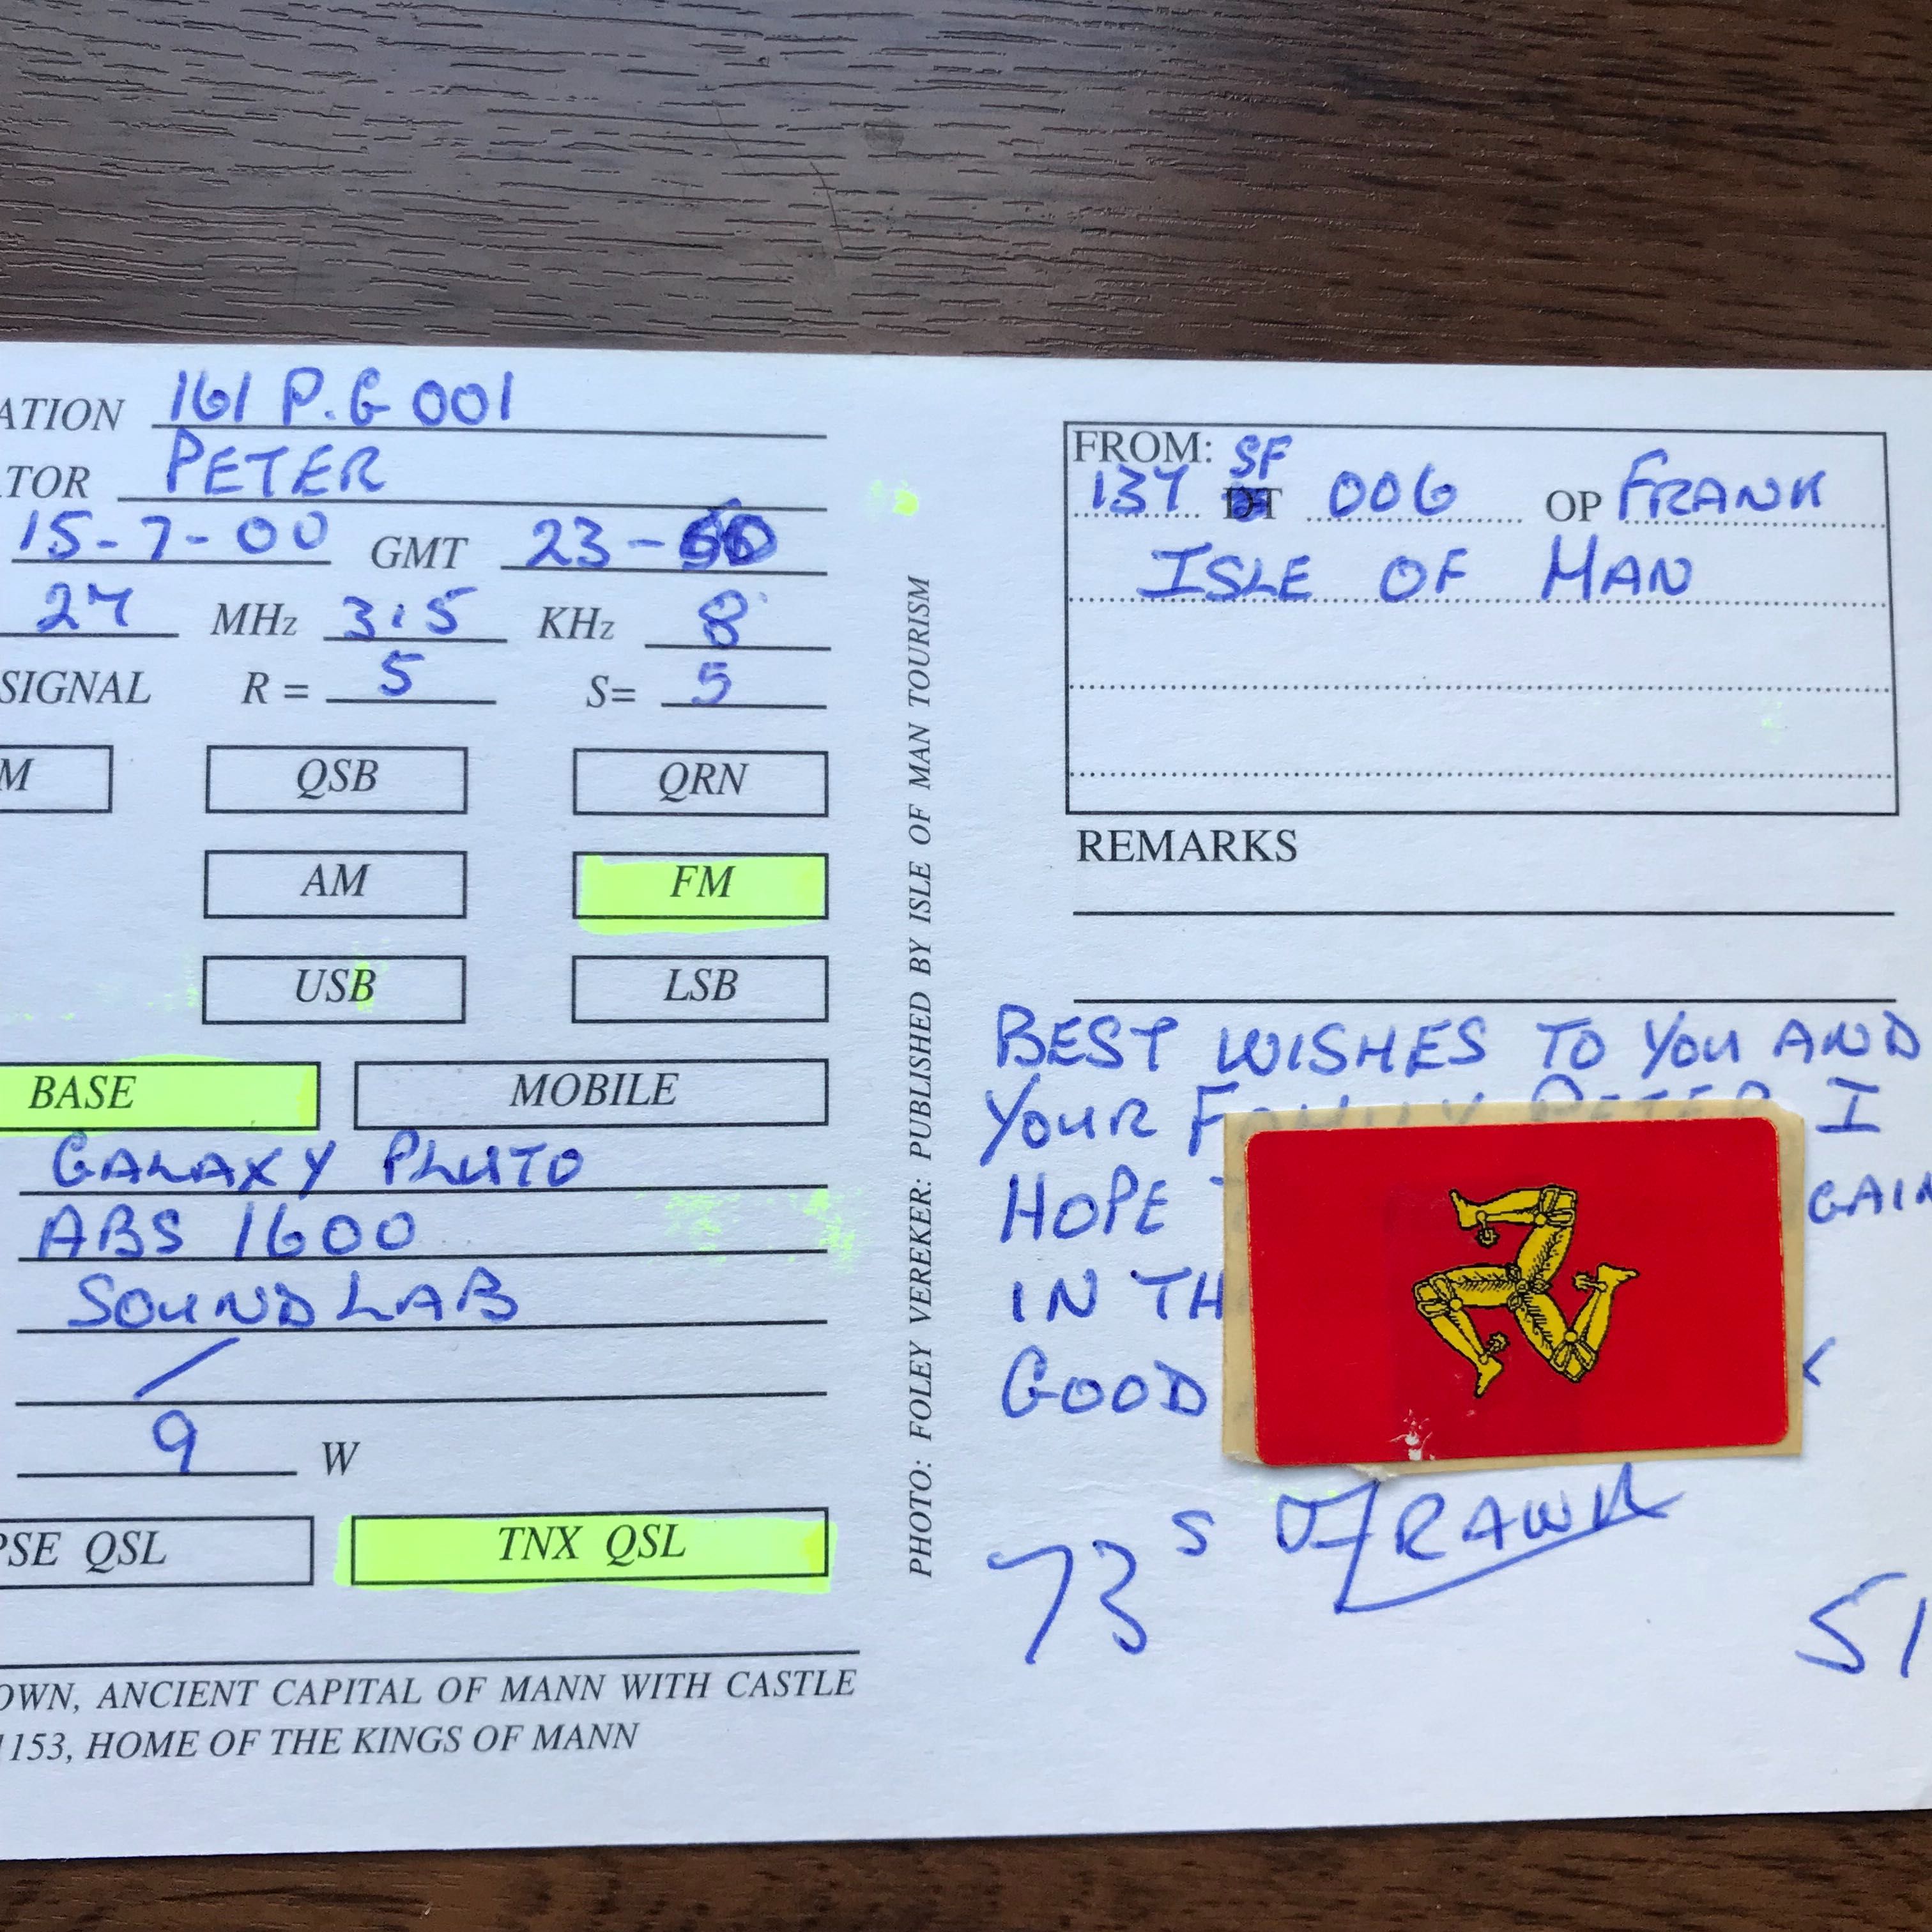 ATION 161 P.G 001
TOR PETER
15-7-00 GMT 23-
27 MHz 3.5 KHz 8
SIGNAL R = 5 S= 5
M QSB QRN
AM FM
USB LSB
BASE MOBILE
GALAXY PLUTO
ABS 1600
SOUNDLAB
/
9 W
PSE QSL TNX QSL
OWN, ANCIENT CAPITAL OF MANN WITH CASTLE
1153, HOME OF THE KINGS OF MANN
PHOTO: FOLEY VEREKER: PUBLISHED BY ISLE OF MAN TOURISM
FROM: SF
137 006 OP FRANK
ISLE OF MAN
REMARKS
BEST WISHES TO YOU AND
YOUR FAMILY PETER I
HOPE GAIN
IN TH
GOOD
73s FRANK
51